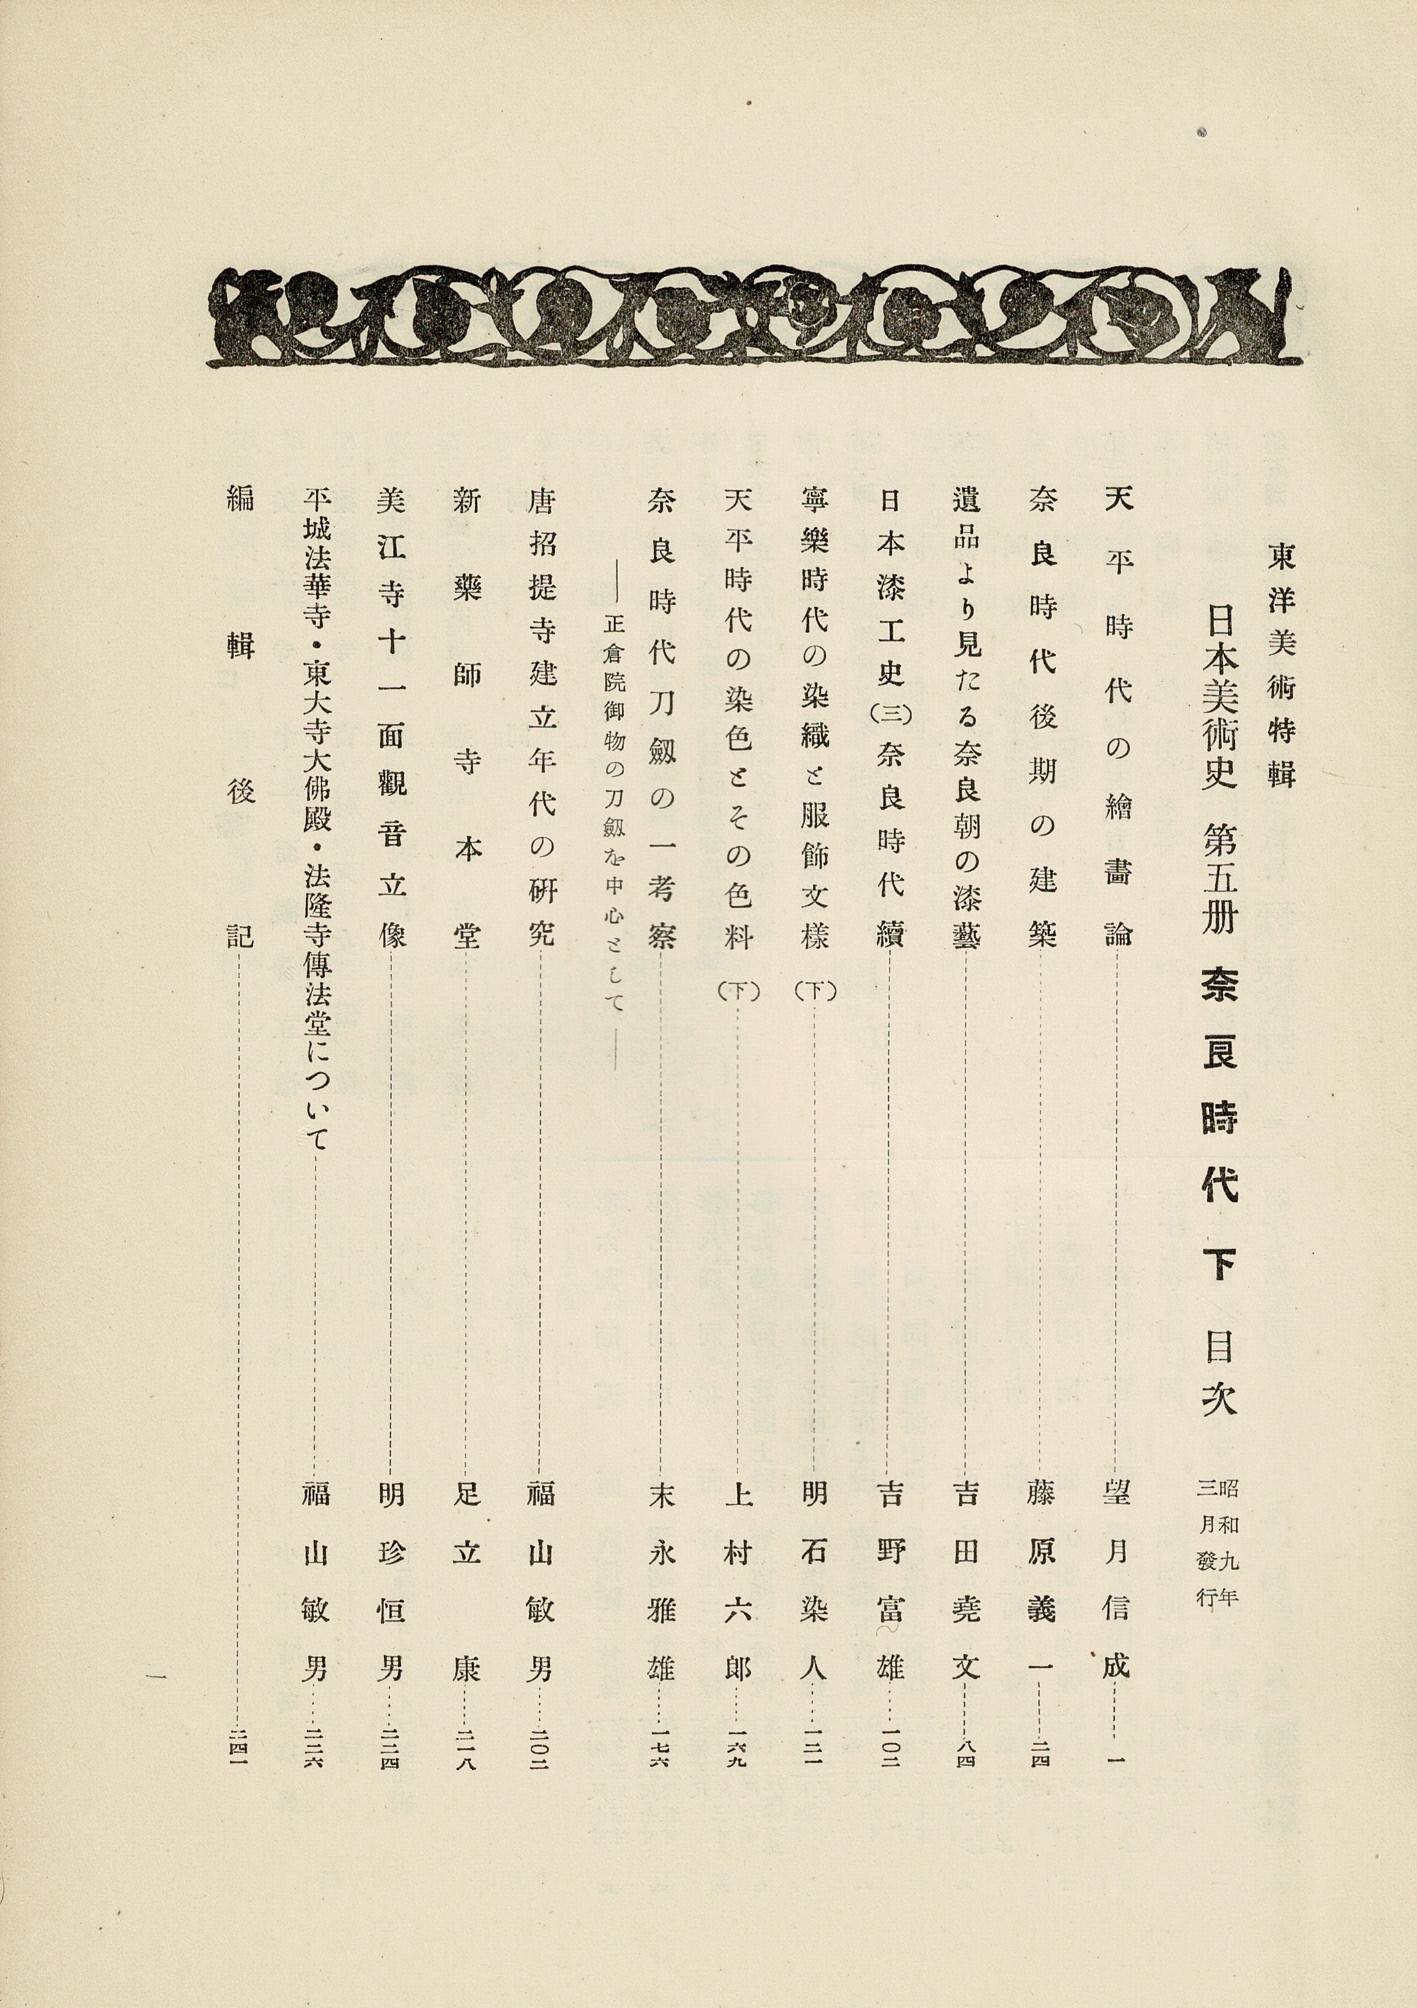 東洋美術特輯
日本美術史 第五册 奈良時代 下 目次
昭和九年
三月發行
天平時代の繪畵論 望月信成 一
奈良時代後期の建築 藤原義一 二四
遺品より見たる奈良朝の漆藝 吉田堯文 八四
日本漆工史(三)奈良時代續 吉野富雄 一〇二
寧樂時代の染織と服飾文樣(下) 明石染人 一二一
天平時代の染色とその色料(下) 上村六郎 一六九
奈良時代刀劔の一考察 末永雅雄 一七六
――正倉院御物の刀劔を中心として――
唐招提寺建立年代の硏究 福山敏男 二〇二
新藥師寺本堂 足立康 二一八
美江寺十一面觀音立像 明珍恒男 二二四
平城法華寺・東大寺大佛殿・法隆寺傳法堂について 福山敏男 二二六
編輯後記 二四一
一